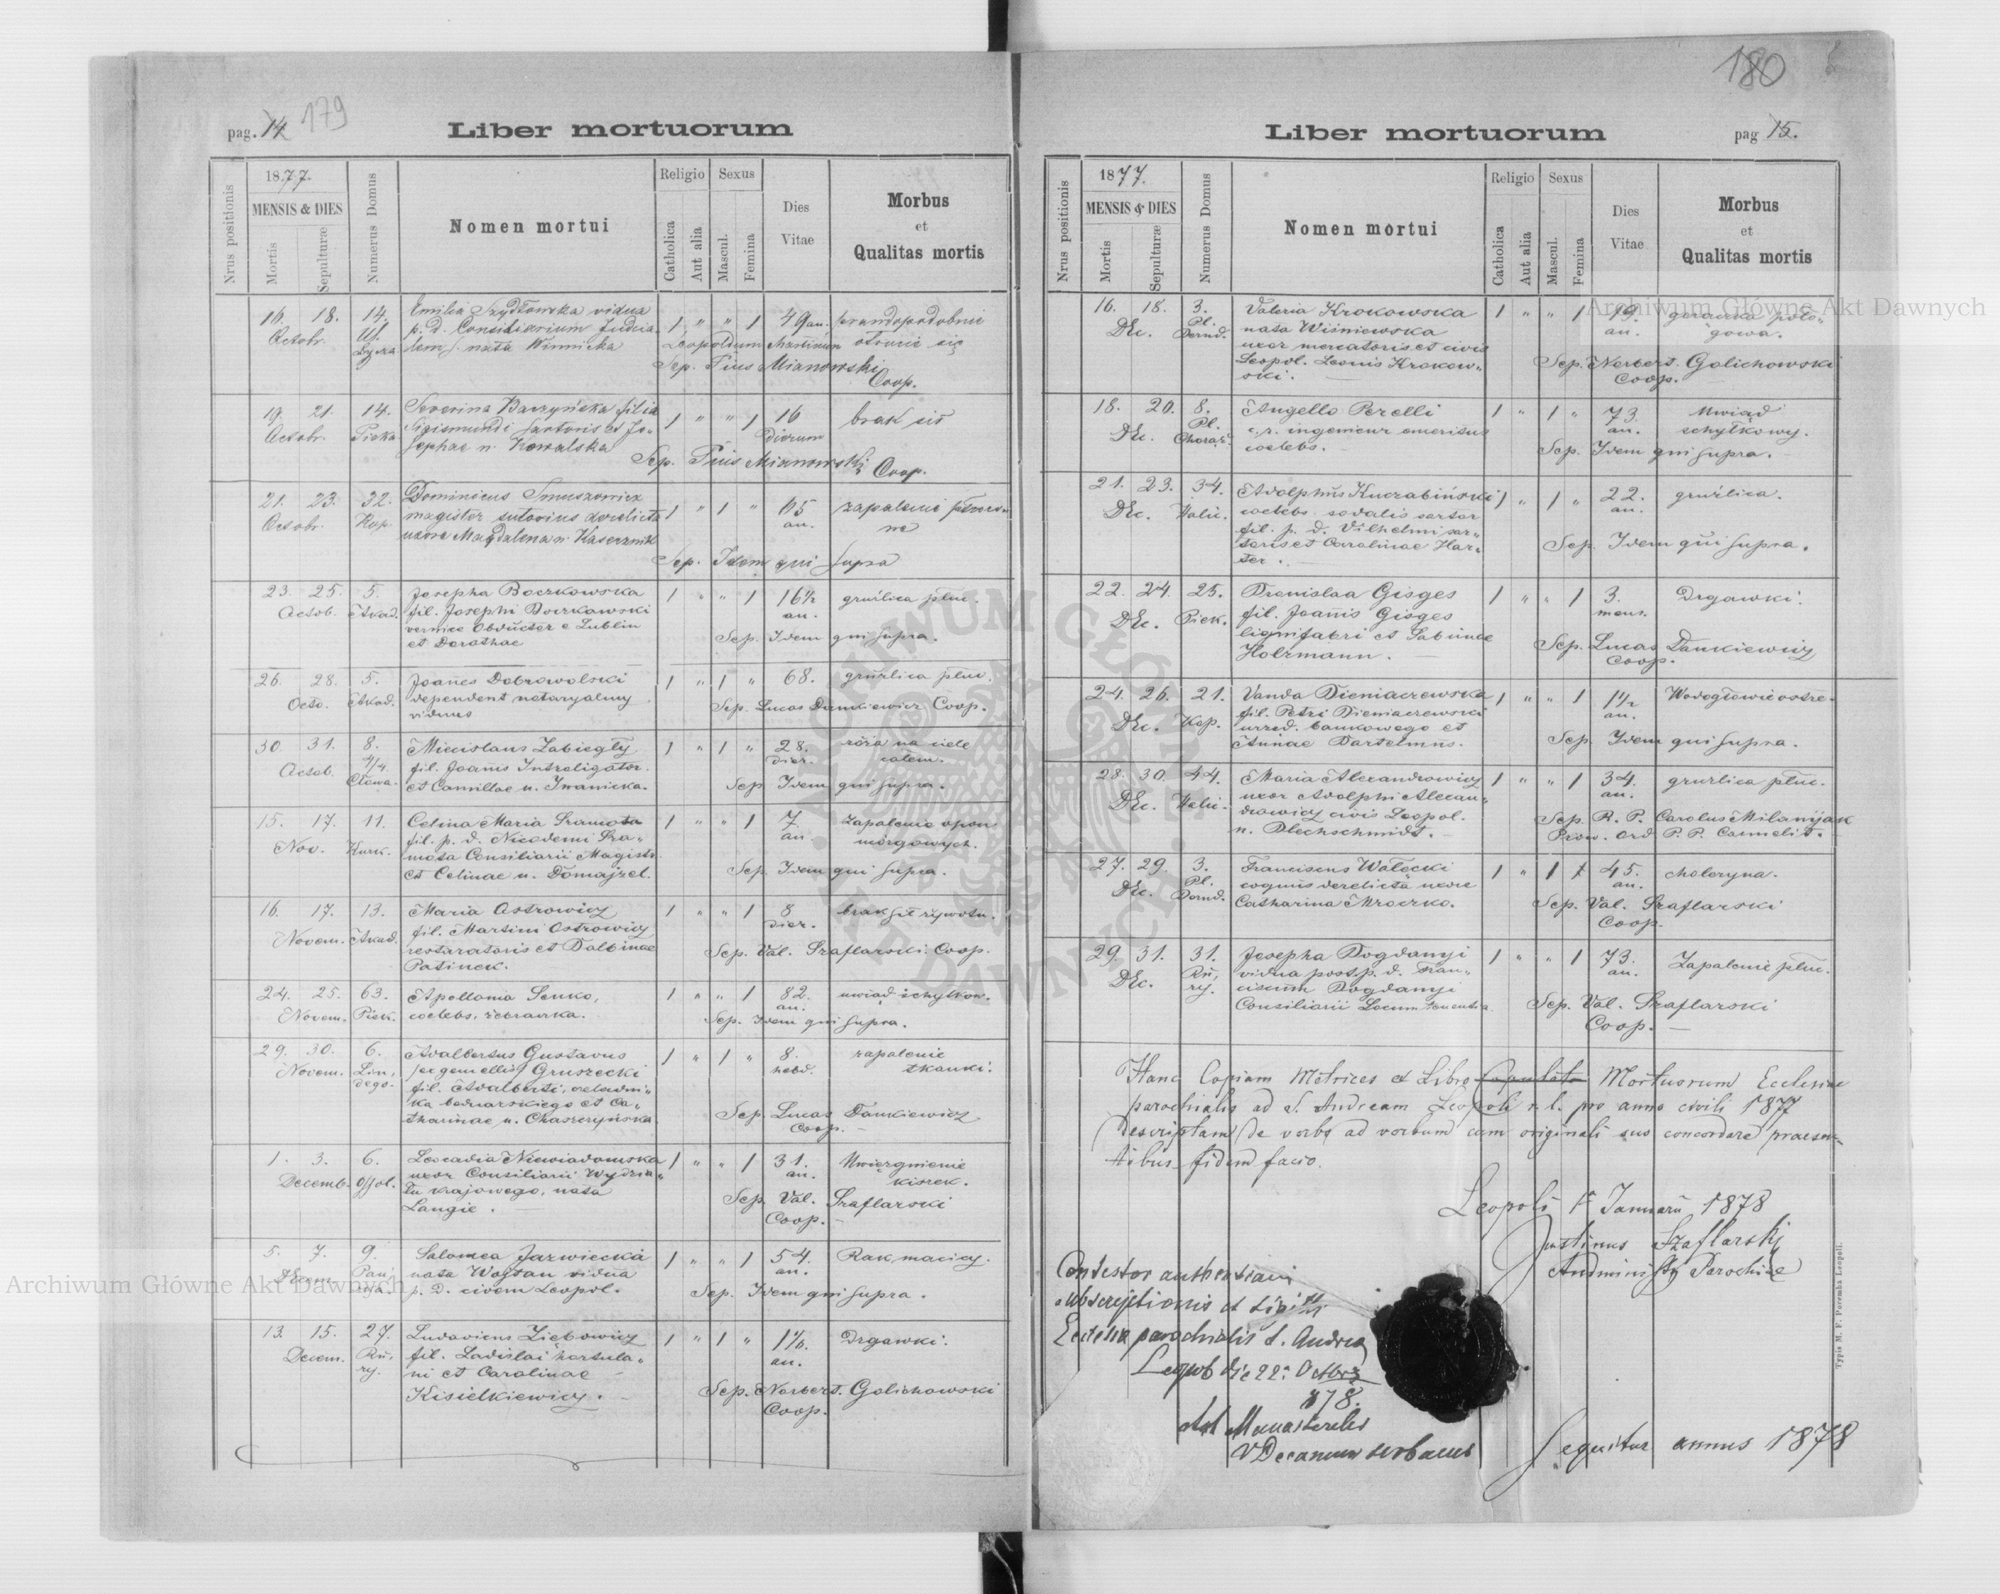 pag. 14 179
Liber mortuorum
Nrus positionis
1877.
MENSIS & DIES
Mortis
Sepulturæ
Numerus Domus
Nomen mortui
Religio
Catholica
Aut alia
Sexus
Mascul.
Femina
Dies Vitae
Morbus
et
Qualitas mortis
16. 18. 14. Emilia Szydłowska vidua
Octobr. Ul.
p. d. Consiliarium
nata Winnicka
1 " " 1 49 an. prawdopodobnie
otrucie się
Sep. Pius Mianowski
Coop.
19. 21. 14. Severina Baczyńska filia
Octobr. Piek
Sigismundi sartoris et Jo-
sephae n. Kowalska
1 " " 1 16 brak sił
Dierum
Sep. Pius Mianowski Coop.
21. 23. 32. Dominicus
Octobr. Kop.
magister sutorius derelicta
uxore Magdalena n.
1 " 1 " 65 zapalenie płuc
an.
Sep. Idem qui supra
23. 25. 5. Josepha Boczkowska
Octob. Akad.
fil. Josephi Boczkowski
et Dorothae
1 " " 1 16½ gruźlica płuc.
an.
Sep. Idem qui supra.
26. 28. 5. Joañes Dobrowolski
Octo. Akad.
dependent notaryalny
viduus
1 " 1 " 68. gruźlica płuc.
Sep. Lucas Dankiewicz Coop.
30. 31. 8. Miecislaus Zabiegły
Octob. 4/4
fil. Joañis Introligator.
et Camillae n. Iwanicka.
1 " 1 " 28. róża na ciele
dier. całem.
Sep. Idem qui supra.
15. 17. 11. Celina Maria Sramota
Nov. Kurk.
fil. p. d. Nicodemi Sra-
mota Consiliarii Magistr.
et Celinae n. Domajzel.
1 " " 1 7 zapalenie opon
an. mózgowych.
Sep. Idem qui supra.
16. 17. 13. Maria Ostrowicz
Novem. Akad.
fil. Martini Ostrowicz
restauratoris et Balbinae
Patinek.
1 " " 1 8 brak sił żywotn.
dier.
Sep. Val. Szaflarski Coop.
24. 25. 63. Apollonia Senko,
Novem. Piek.
coelebs, żebraczka.
1 " " 1 82. uwiąd schyłkow.
an.
Sep. Idem qui supra.
29. 30. 6. Adalbertus Gustavus
Novem. Lin-
dego.
(ex gemellis) Gruszecki
fil. Adalberti, czeladni-
ka bednarskiego et Ca-
tharinae n. Chaszczyńska
1 " 1 " 8. zapalenie
hebd. tkanki.
Sep. Lucas Dankiewicz
Coop.
1. 3. 6. Leocadia Niewiadomska
Decemb. Ossol.
uxor Consiliarii Wydzia-
łu krajowego, nata
Langie.
1 " " 1 31. Uwięzgnienie
an. kiszek.
Sep. Val. Szaflarski
Coop.
5. 7. 9. Salomea Jazwiecka
nata Wojtan vidua
p. d. civem Leopol.
1 " " 1 54. Rak macicy.
an.
Sep. Idem qui supra.
13. 15. 27. Ludovicus Ziębowicz
Decem. Ru-
ry.
fil. Ladislai hortula-
ni et Carolinae
Kisielkiewicz.
1 " 1 " Drgawki.
an.
Sep. Norbert. Golichowski
Coop.
180
Liber mortuorum
pag 15.
Nrus positionis
1877.
MENSIS & DIES
Mortis
Sepulturæ
Numerus Domus
Nomen mortui
Religio
Catholica
Aut alia
Sexus
Mascul.
Femina
Dies
Vitae
Morbus
et
Qualitas mortis
16. 18. 3. Valeria Krokowska
Dec. Pl.
Bernd.
nata Wiśniewska
uxor mercatoris et civis
Leopol. Leonis Krokow-
ski.
1 " " 1 19. gorączka poło-
an. gowa.
Sep. Norbert. Golichowski
Coop.
18. 20. 8. Angello Perelli
Dec. Pl.
c. r. ingenieur emeritus
coelebs.
1 " 1 " 73. Uwiąd
an. schyłkowy.
Sep. Idem qui supra.
21. 23. 34. Adolphus Kuczabiński
Dec. Halic.
coelebs sodalis sartor
fil. p. d. Vilhelmi sar-
toris et Carolinae Har-
ter.
1 " 1 " 22. gruźlica.
an.
Sep. Idem qui supra.
22. 24. 25. Bronislaa Gisges
Dec. Piek.
fil. Joañis Gisges
lignifabri et Sabinae
Holzmann.
1 " " 1 3. Drgawki.
mens.
Sep. Lucas Dankiewicz
Coop.
24. 26. 21. Vanda Dieniaczewska
Dec. Kop.
fil. Petri Dieniaczewski
urzęd. bankowego et
Annae Bartelmus.
1 " " 1 1½ Wodogłowie ostre.
an.
Sep. Idem qui supra.
28. 30. 44. Maria Alexandrowicz
Dec. Halic.
uxor Adolphi Alexan-
drowicz civis Leopol.
n. Blechschmidt.
1 " " 1 34. gruźlica płuc.
an.
Sep. R. P. Carolus Milanijak
Prow. Ord. P. P. Carmelit.
27. 29. 3. Franciscus Wałecki
Dec. Pl.
Bernd.
coquus derelicta uxore
Catharina Mroczko.
1 " 1 1 45. choleryna.
an.
Sep. Val. Szaflarski
Coop.
29. 31. 31. Josepha Bogdanyi
Dec. Ru-
ry.
vidua post p. d. Fran-
ciscum Bogdanyi
Consiliarii Locumtenentia
1 " " 1 73. Zapalenie płuc.
an.
Sep. Val. Szaflarski
Coop.
Hanc Copiam Metrices et Libro Copulato Mortuorum Ecclesiae
parochialis ad S. Andream Leopoli r. l. pro anno civili 1877
descriptam de verbo ad verbum cum originali suo concordare praesen-
tibus fidem facio.
Leopoli 1° Januarii 1878
Justinus Szaflarski
Administr. Parochiae
Contestor authentiam
subscriptionis et sigilli
Ecclesiae parochialis S. Andrea
Leopoli die 22: Octobris
878.
Sequitur annus 1878
Typis M. F. Poremba Leopoli.
Archiwum Główne Akt Dawnych
Archiwum Główne Akt Dawnych
ARCHIWUM GŁÓWNE AKT DAWNYCH